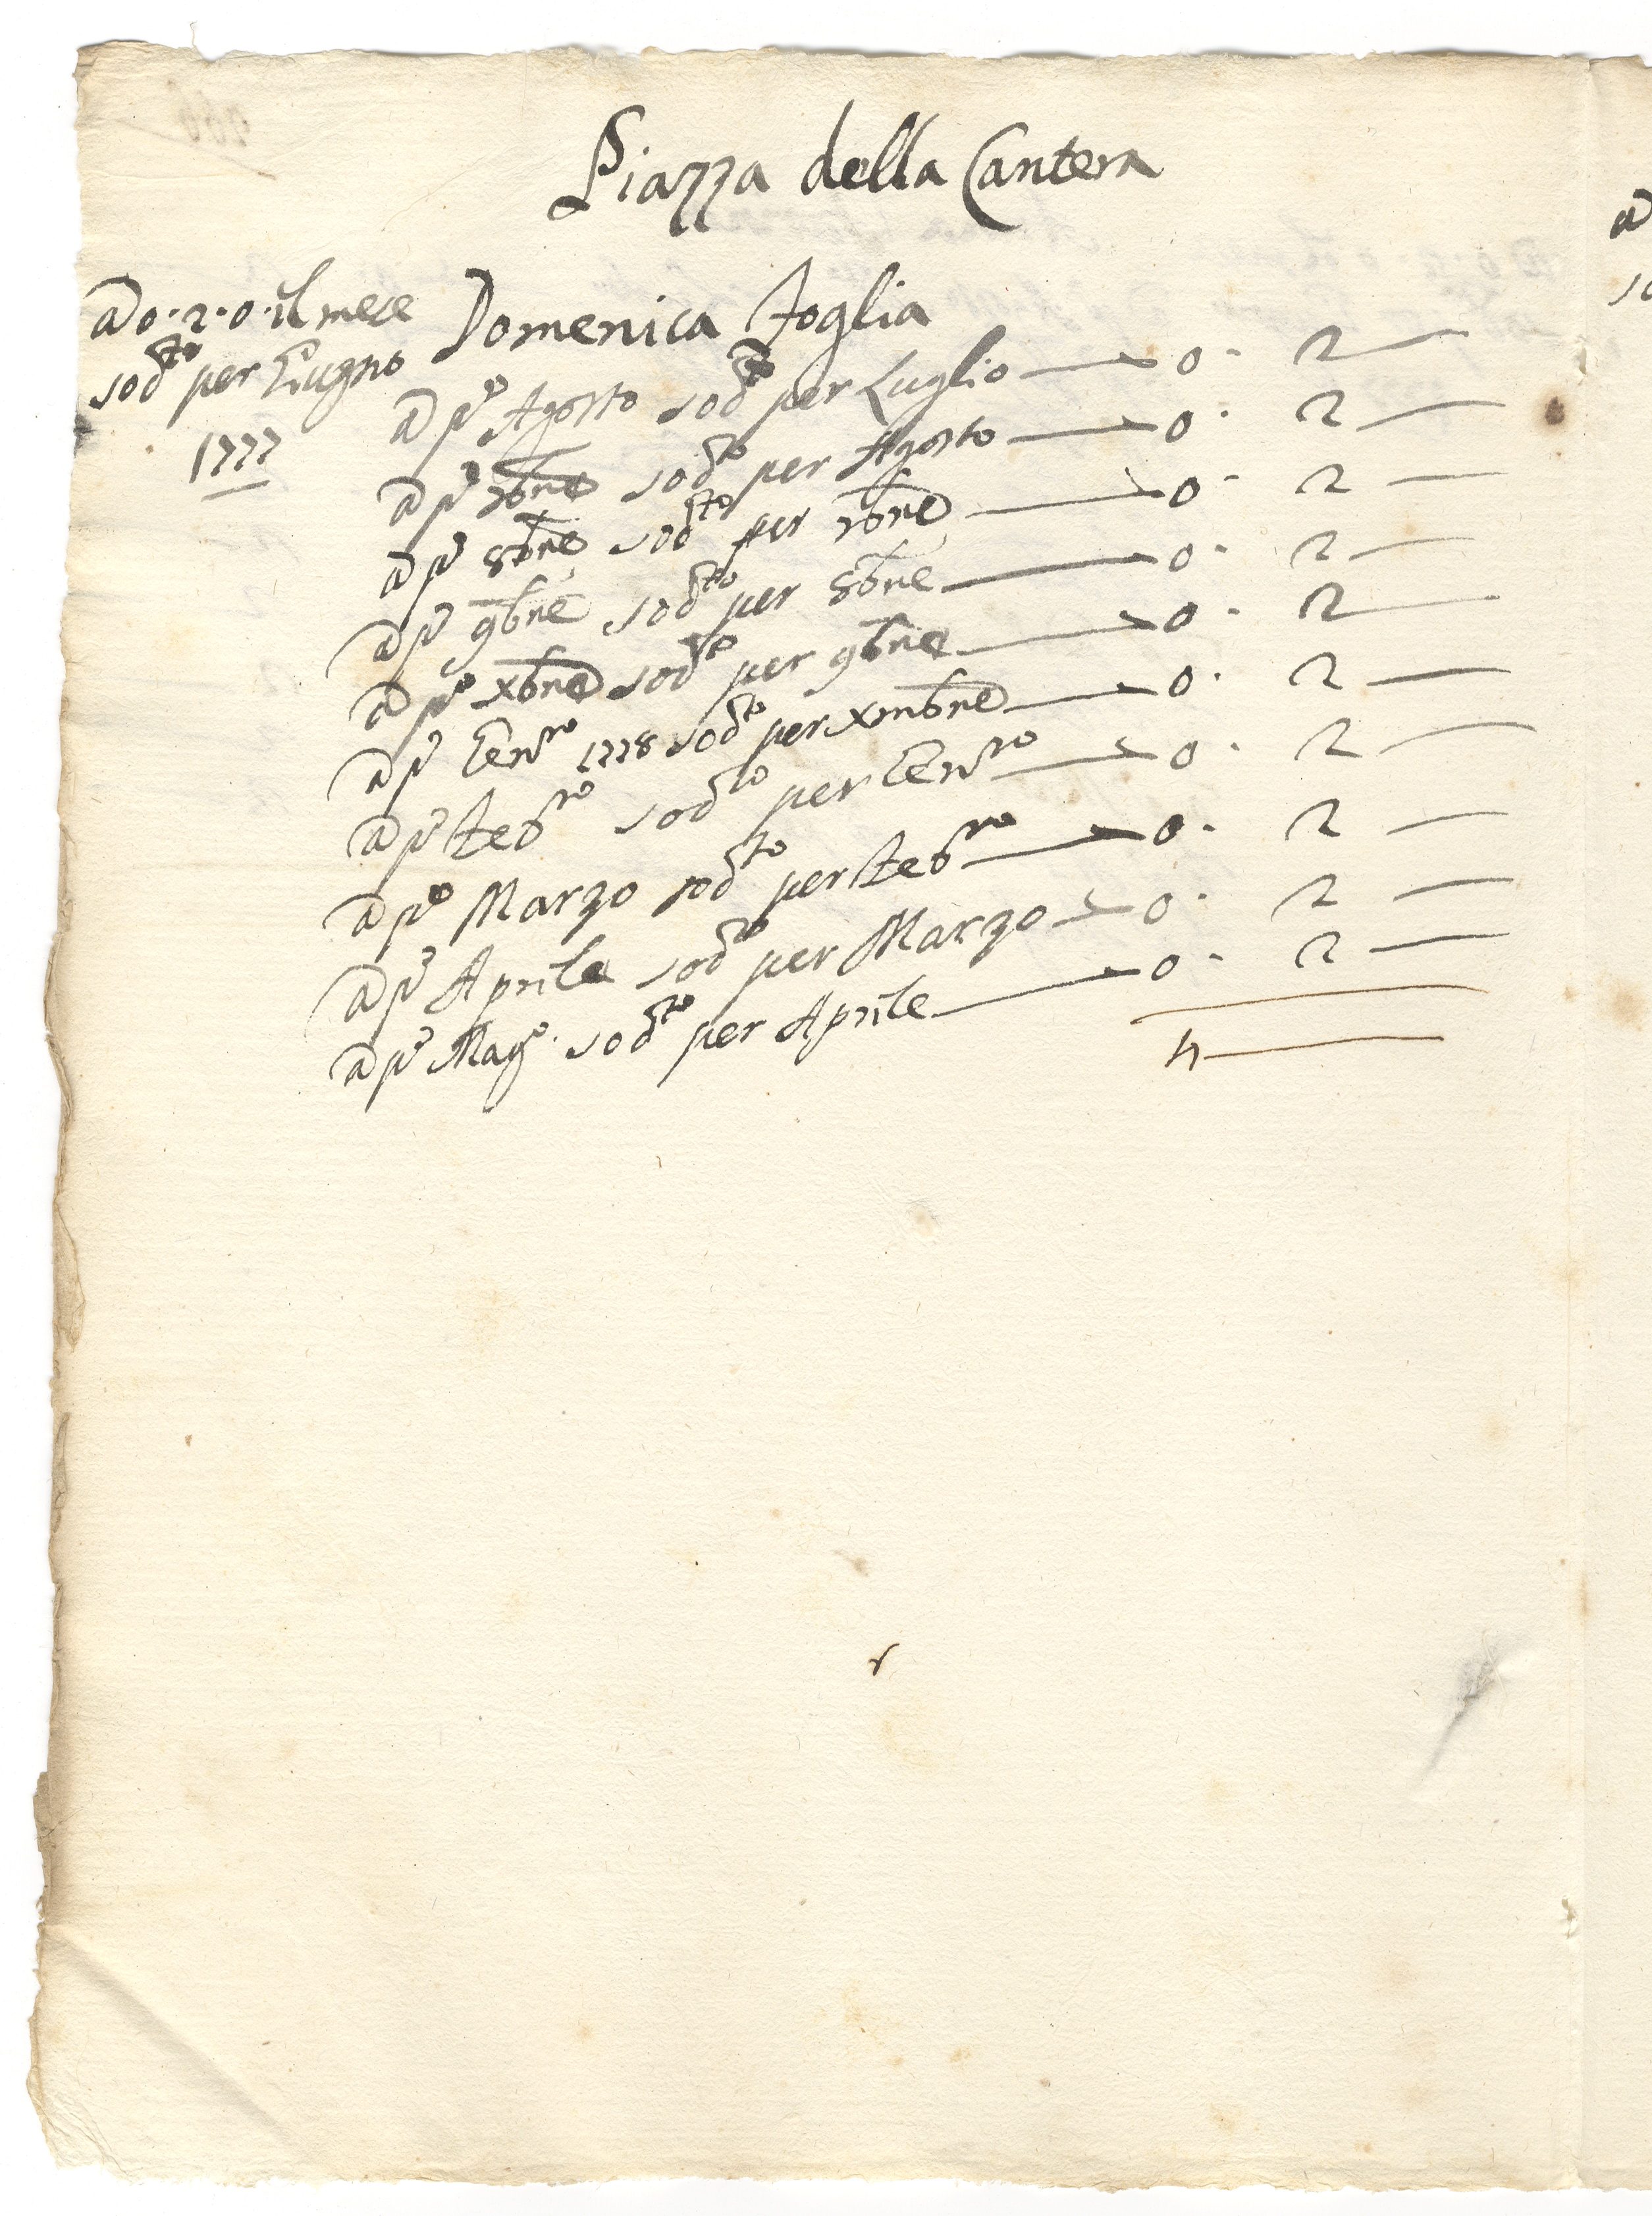 Piazza della Cantera
a 0·2·0· il mese
Domenica Foglia
sod.to per Giugno
1777
a p.º Agosto sod.to per Luglio — 0· 2 —
a p.º 7bre sod.to per Agosto — 0· 2 —
a p.º 8bre sod.to per 7bre — 0· 2 —
a p.º 9bre sod.to per 8bre — 0· 2 —
a p.º Xbre sod.to per 9bre — 0· 2 —
a p.º Gen.ro 1778 sod.to per Xmbre — 0· 2 —
a p.º Feb.ro sod.to per Gen.ro — 0· 2 —
a p.º Marzo sod.to per Feb.ro — 0· 2 —
a p.º Aprile sod.to per Marzo — 0· 2 —
a p.º Mag.º sod.to per Aprile — 0· 2 —